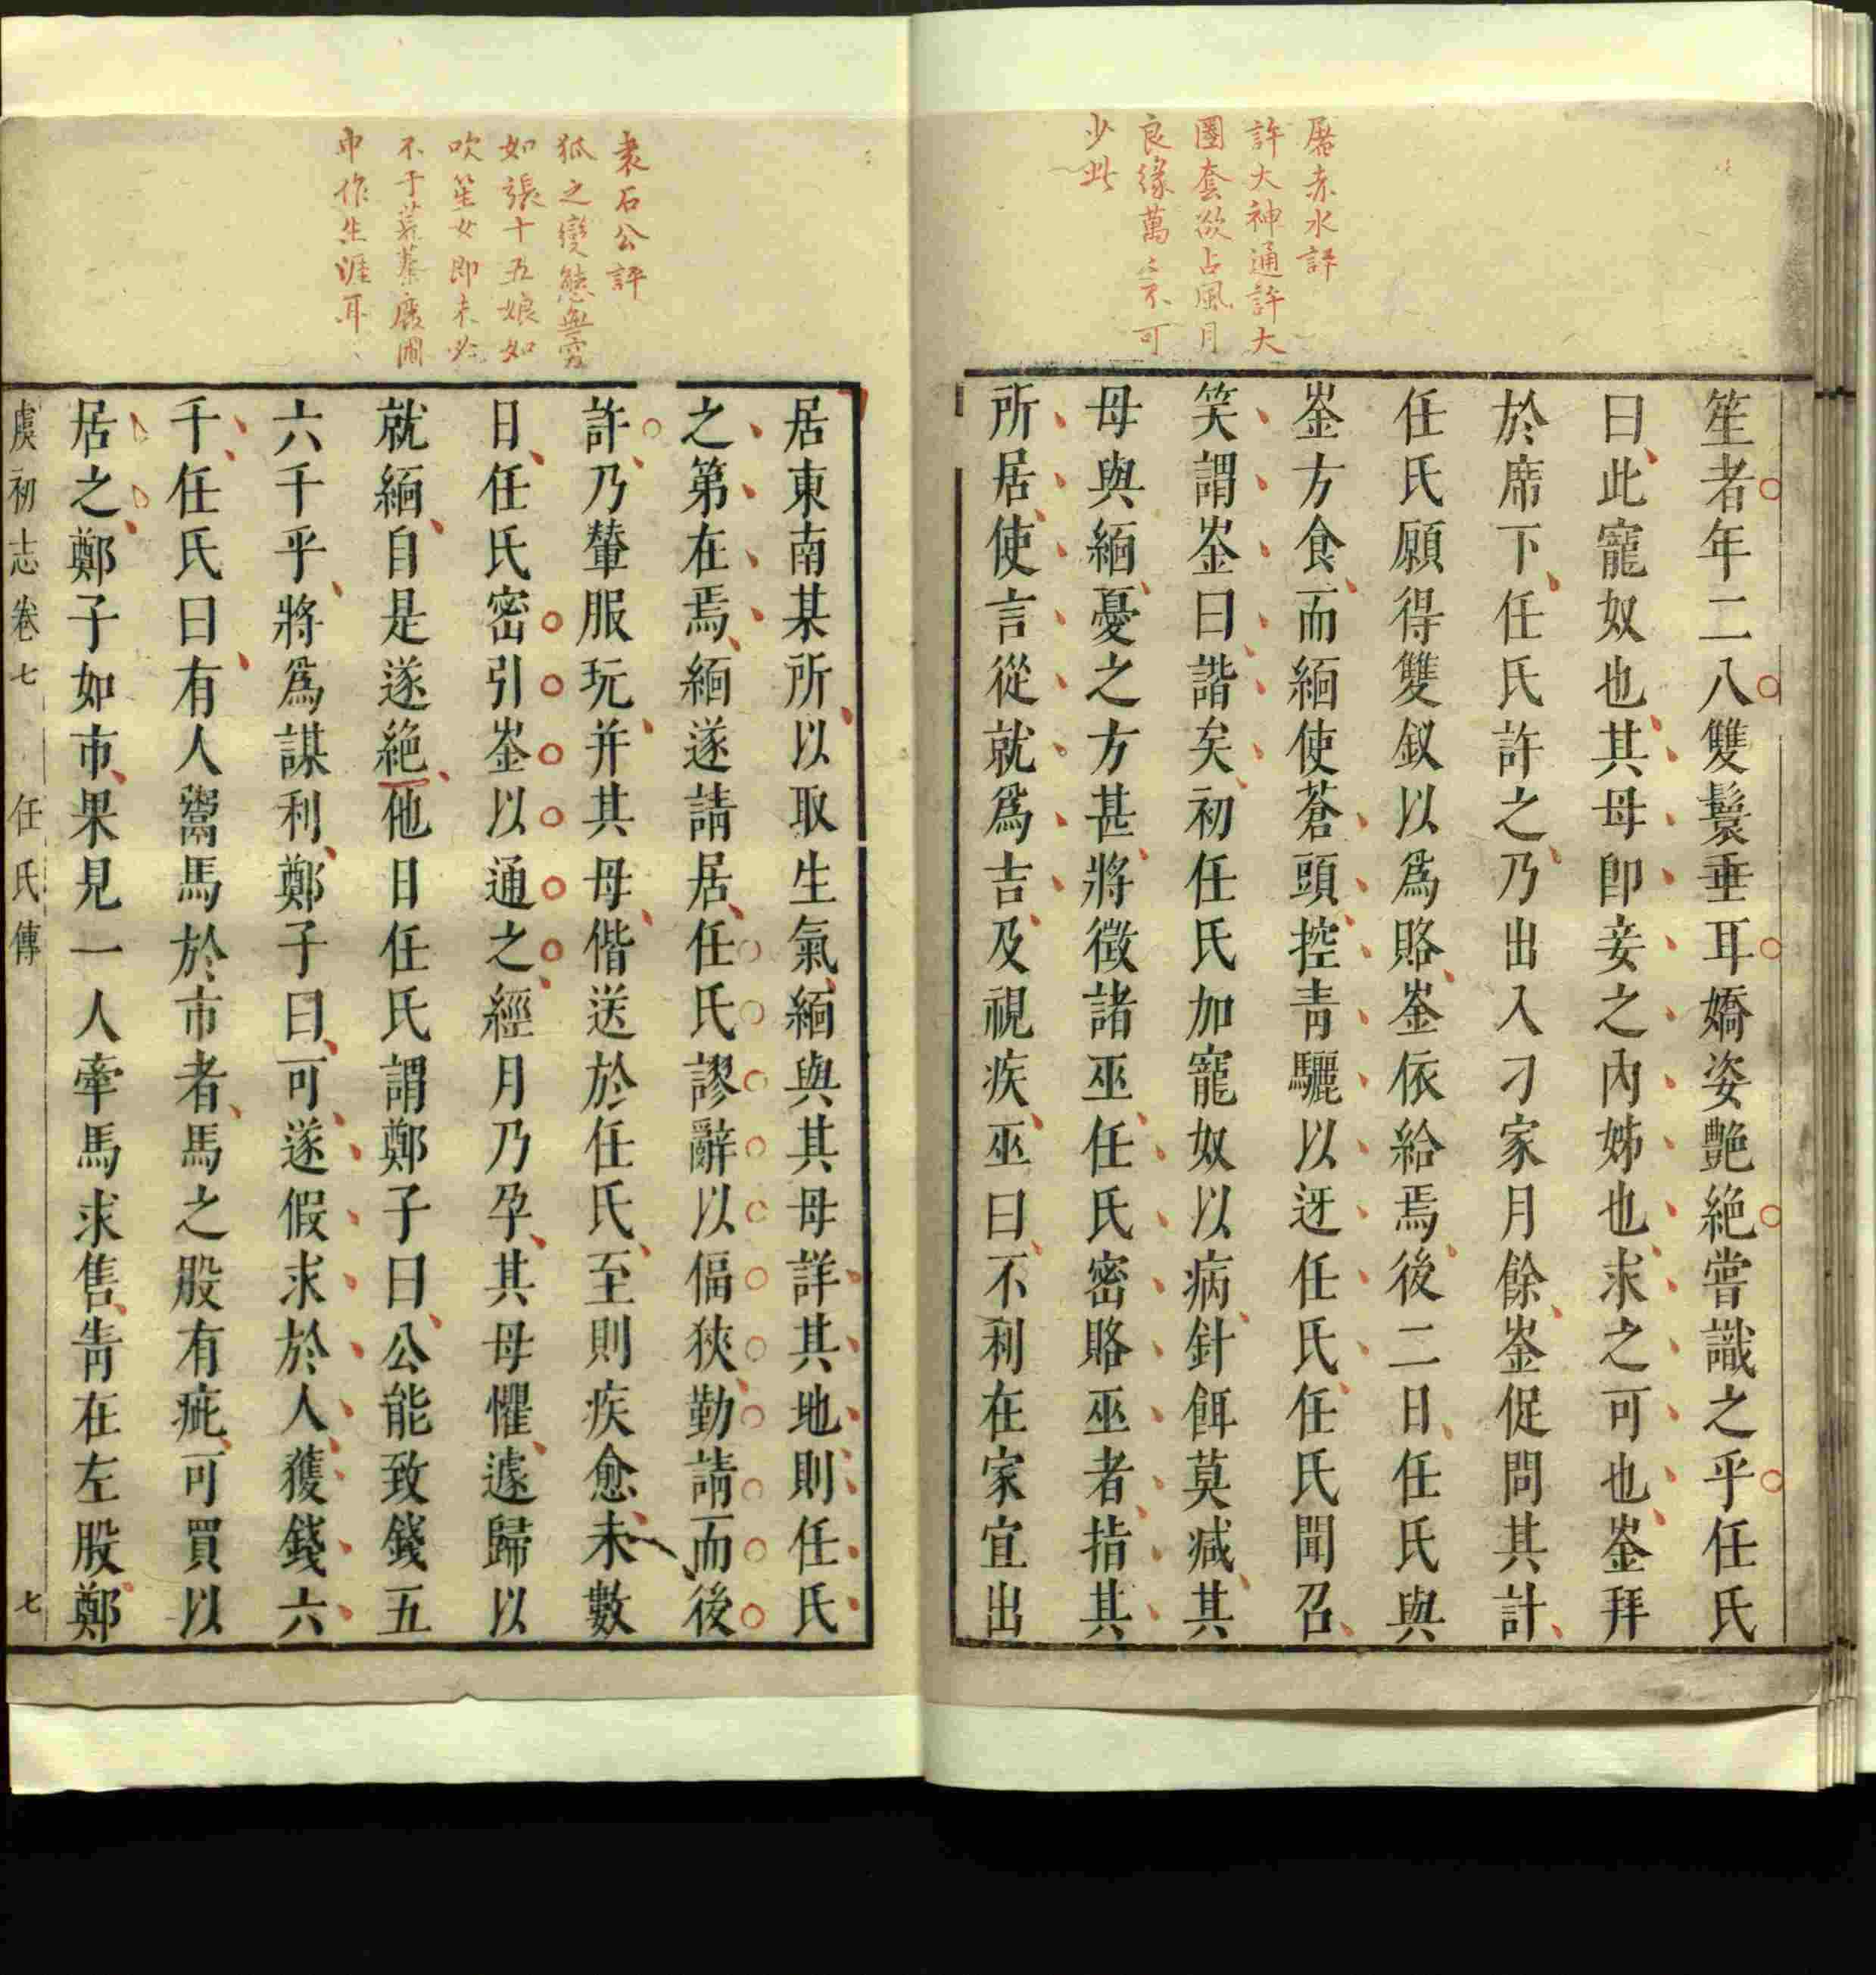 屠赤水評
許大神通許大
圈套欲占風月
良緣萬萬不可
少此
笙者年二八雙鬟垂耳嬌姿艷絕嘗識之乎任氏
曰此寵奴也其母卽妾之內姊也求之可也崟拜
於席下任氏許之乃出入刁家月餘崟促問其計
任氏願得雙釵以爲賂崟依給焉後二日任氏與
崟方食而緬使蒼頭控靑驪以迓任氏任氏聞召
笑謂崟曰諧矣初任氏加寵奴以病針餌莫减其
母與緬憂之方甚將徵諸巫任氏密賂巫者指其
所居使言從就爲吉及視疾巫曰不利在家宜出
袁石公評
狐之變態無窮
如張十五娘如
吹笙女卽未必
不于墓廢間
中作生涯耳
居東南某所以取生氣緬與其母詳其地則任氏
之第在焉緬遂請居任氏謬辭以偪狹勤請而後
許乃輦服玩并其母偕送於任氏至則疾愈未數
日任氏密引崟以通之經月乃孕其母懼遽歸以
就緬自是遂絕他日任氏謂鄭子曰公能致錢五
六千乎將爲謀利鄭子曰可遂假求於人獲錢六
千任氏曰有人鬻馬於市者馬之股有疵可買以
居之鄭子如市果見一人牽馬求售靑在左股鄭
虞初志卷七 任氏傳 七